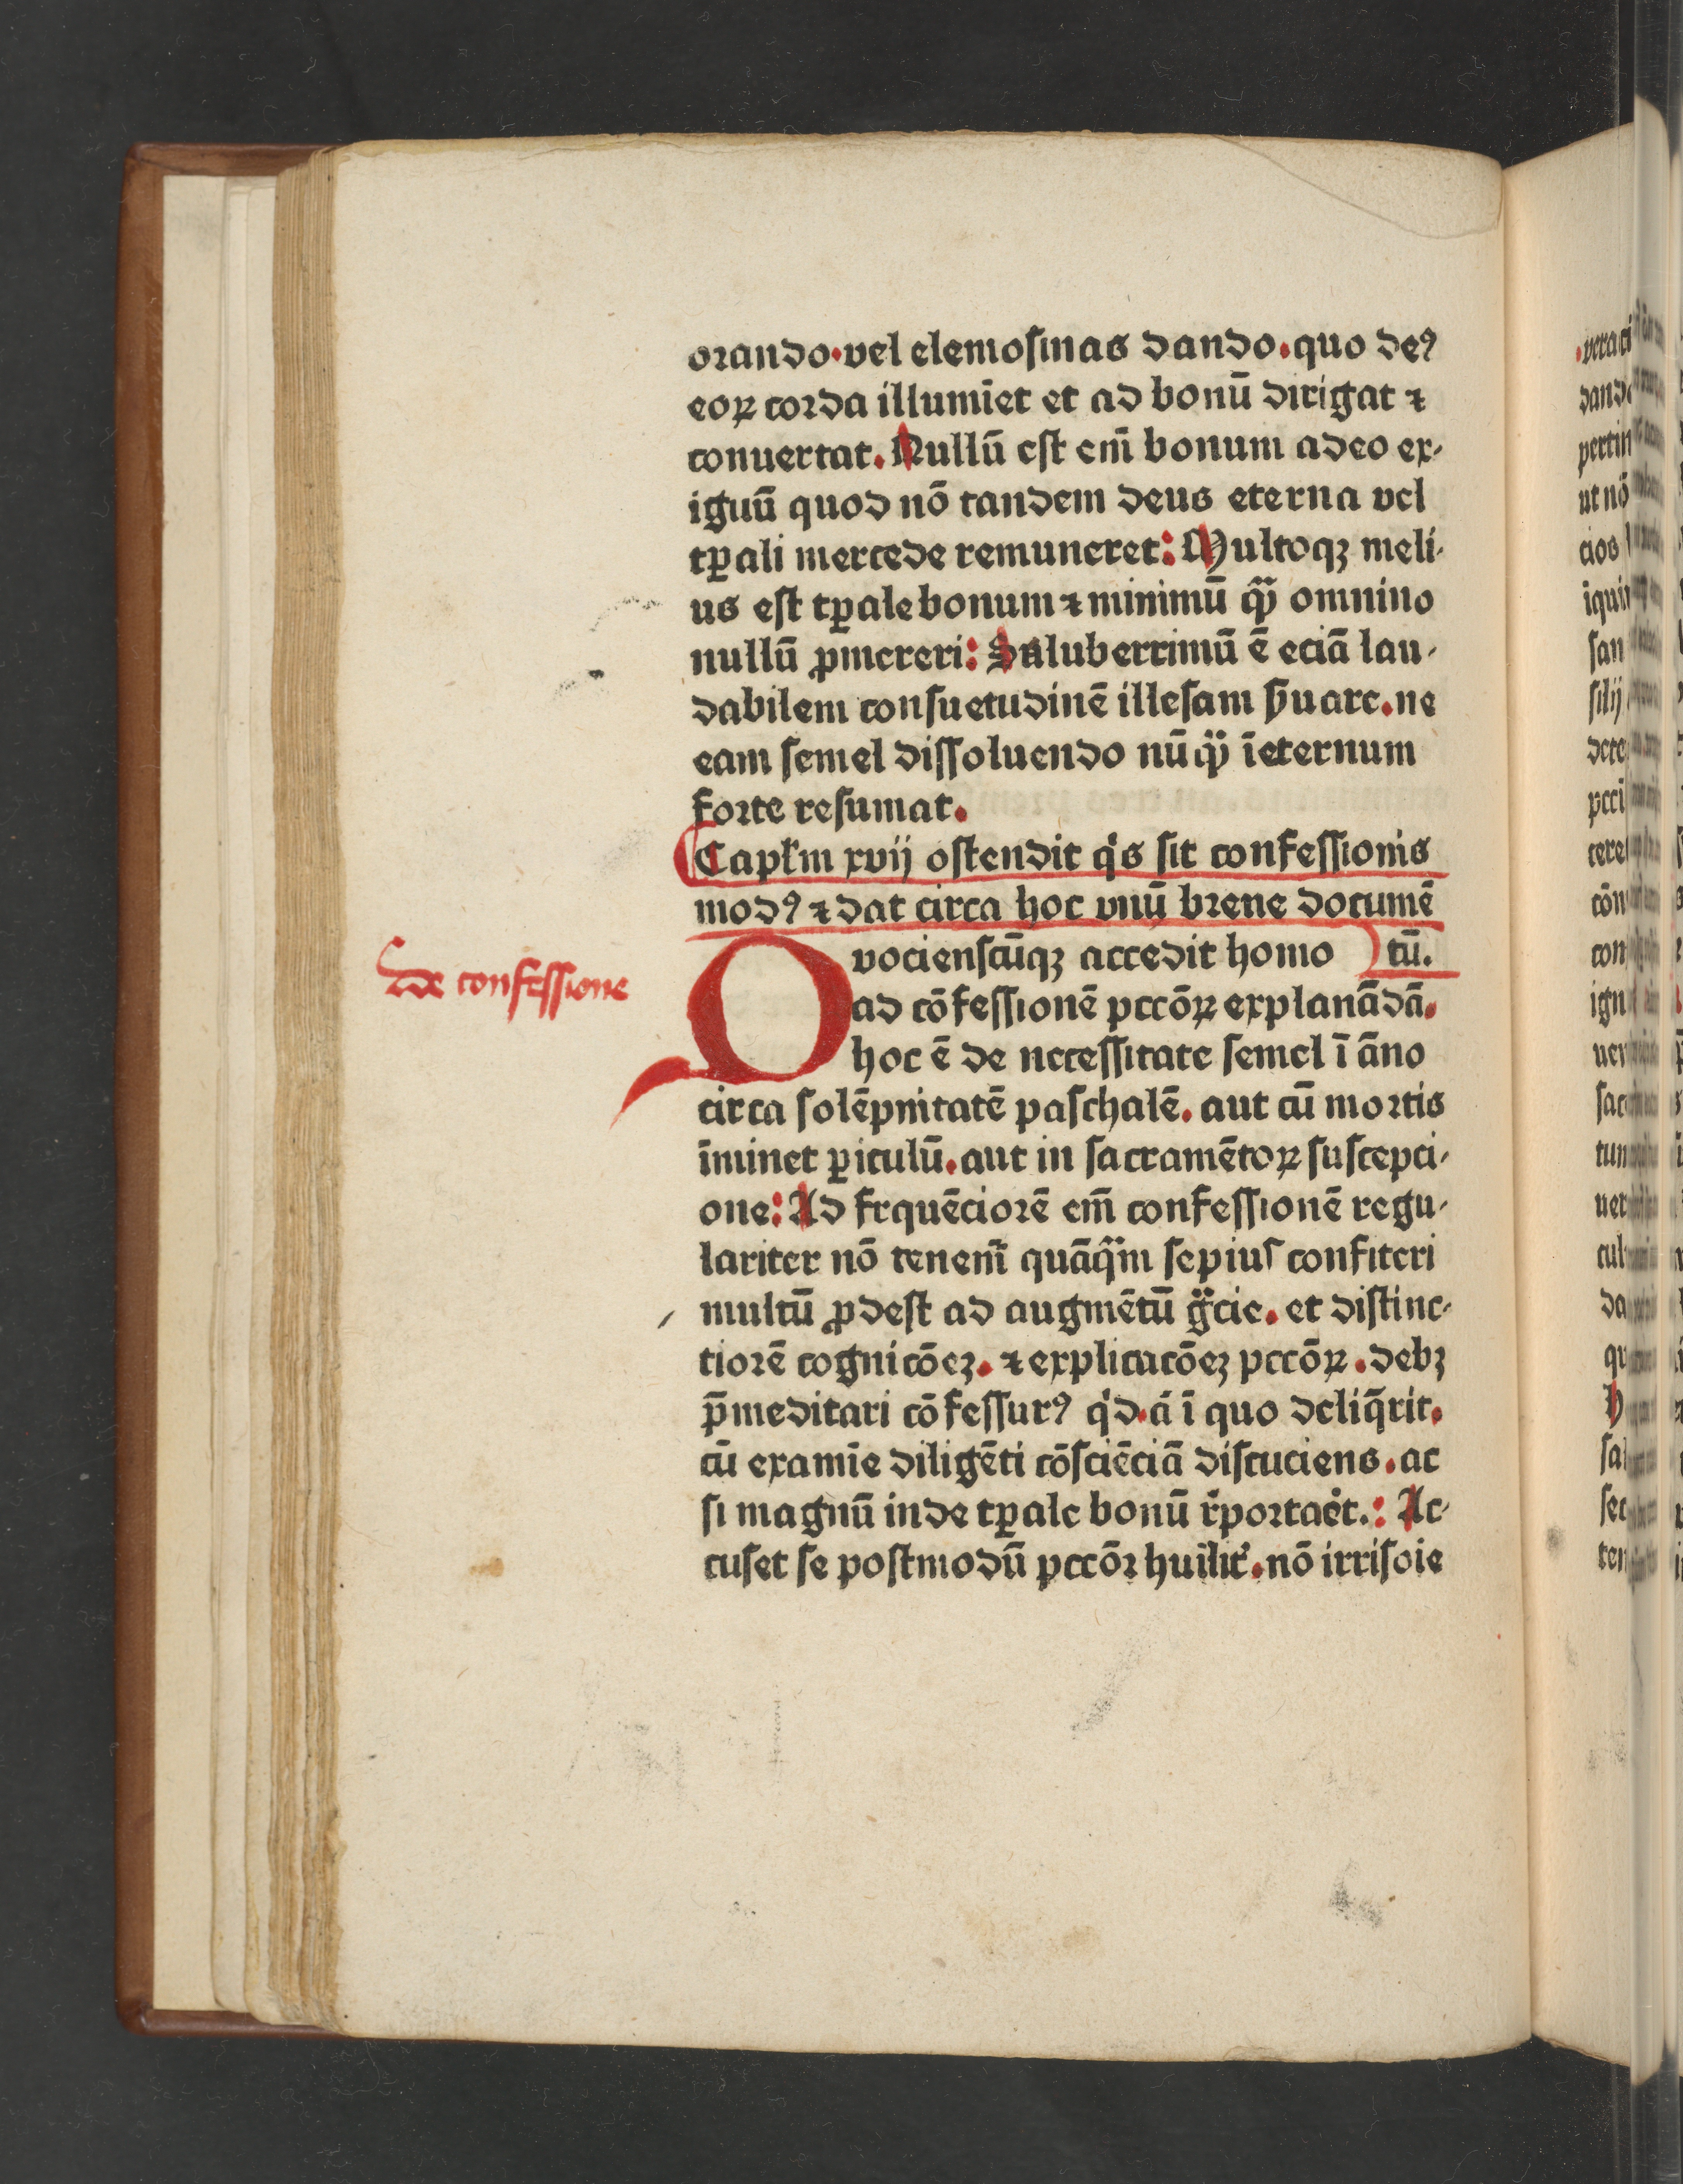 orando.vel elemosinas dando.quo deꝰ
eoꝝ corda illumīet et ad bonū dirigat ⁊
conuertat.Nullū est em̄ bonum adeo ex-
iguū quod nō tandem deus eterna vel
tꝑali mercede remuneret: Multoqꝫ meli-
us est tꝑale bonum ⁊ minimū qͣꝫ omnino
nullū ꝓmereri: Saluberrimū ē eciā lau-
dabilem consuetudinē illesam ẜuare.ne
eam semel dissoluendo nūqͣꝫ īeternum
forte resumat.
Capłm xvij ostendit qͥs sit confessionis
modꝰ ⁊ dat circa hoc vnū breue documē
tū.
de confessione
Quociensc̄uqꝫ accedit homo
ad cōfessionē pccōꝝ explanādā.
hoc ē de necessitate semel ī āno
circa solēpnitatē paschalē.aut cū mortis
īminet ꝑiculū.aut in sacramētoꝝ suscepci-
one: Ad frquēciorē em̄ confessionē regu-
lariter nō tenem̄ quāqͣm sepius confiteri
multū ꝓdest ad augmētū gͣcie.et distinc-
tiorē cognicōeꝫ.⁊ explicacōeꝫ pccōꝝ.debꝫ
p̄meditari cōfessurꝰ qͥd.ā ī quo deliq̄rit.
cū examīe diligēti cōsciēciā discuciens.ac
si magnū inde tꝑale bonū r̄portaēt.: Ac-
cuset se postmodū pccōꝛ huīlit̄.nō irrisoie